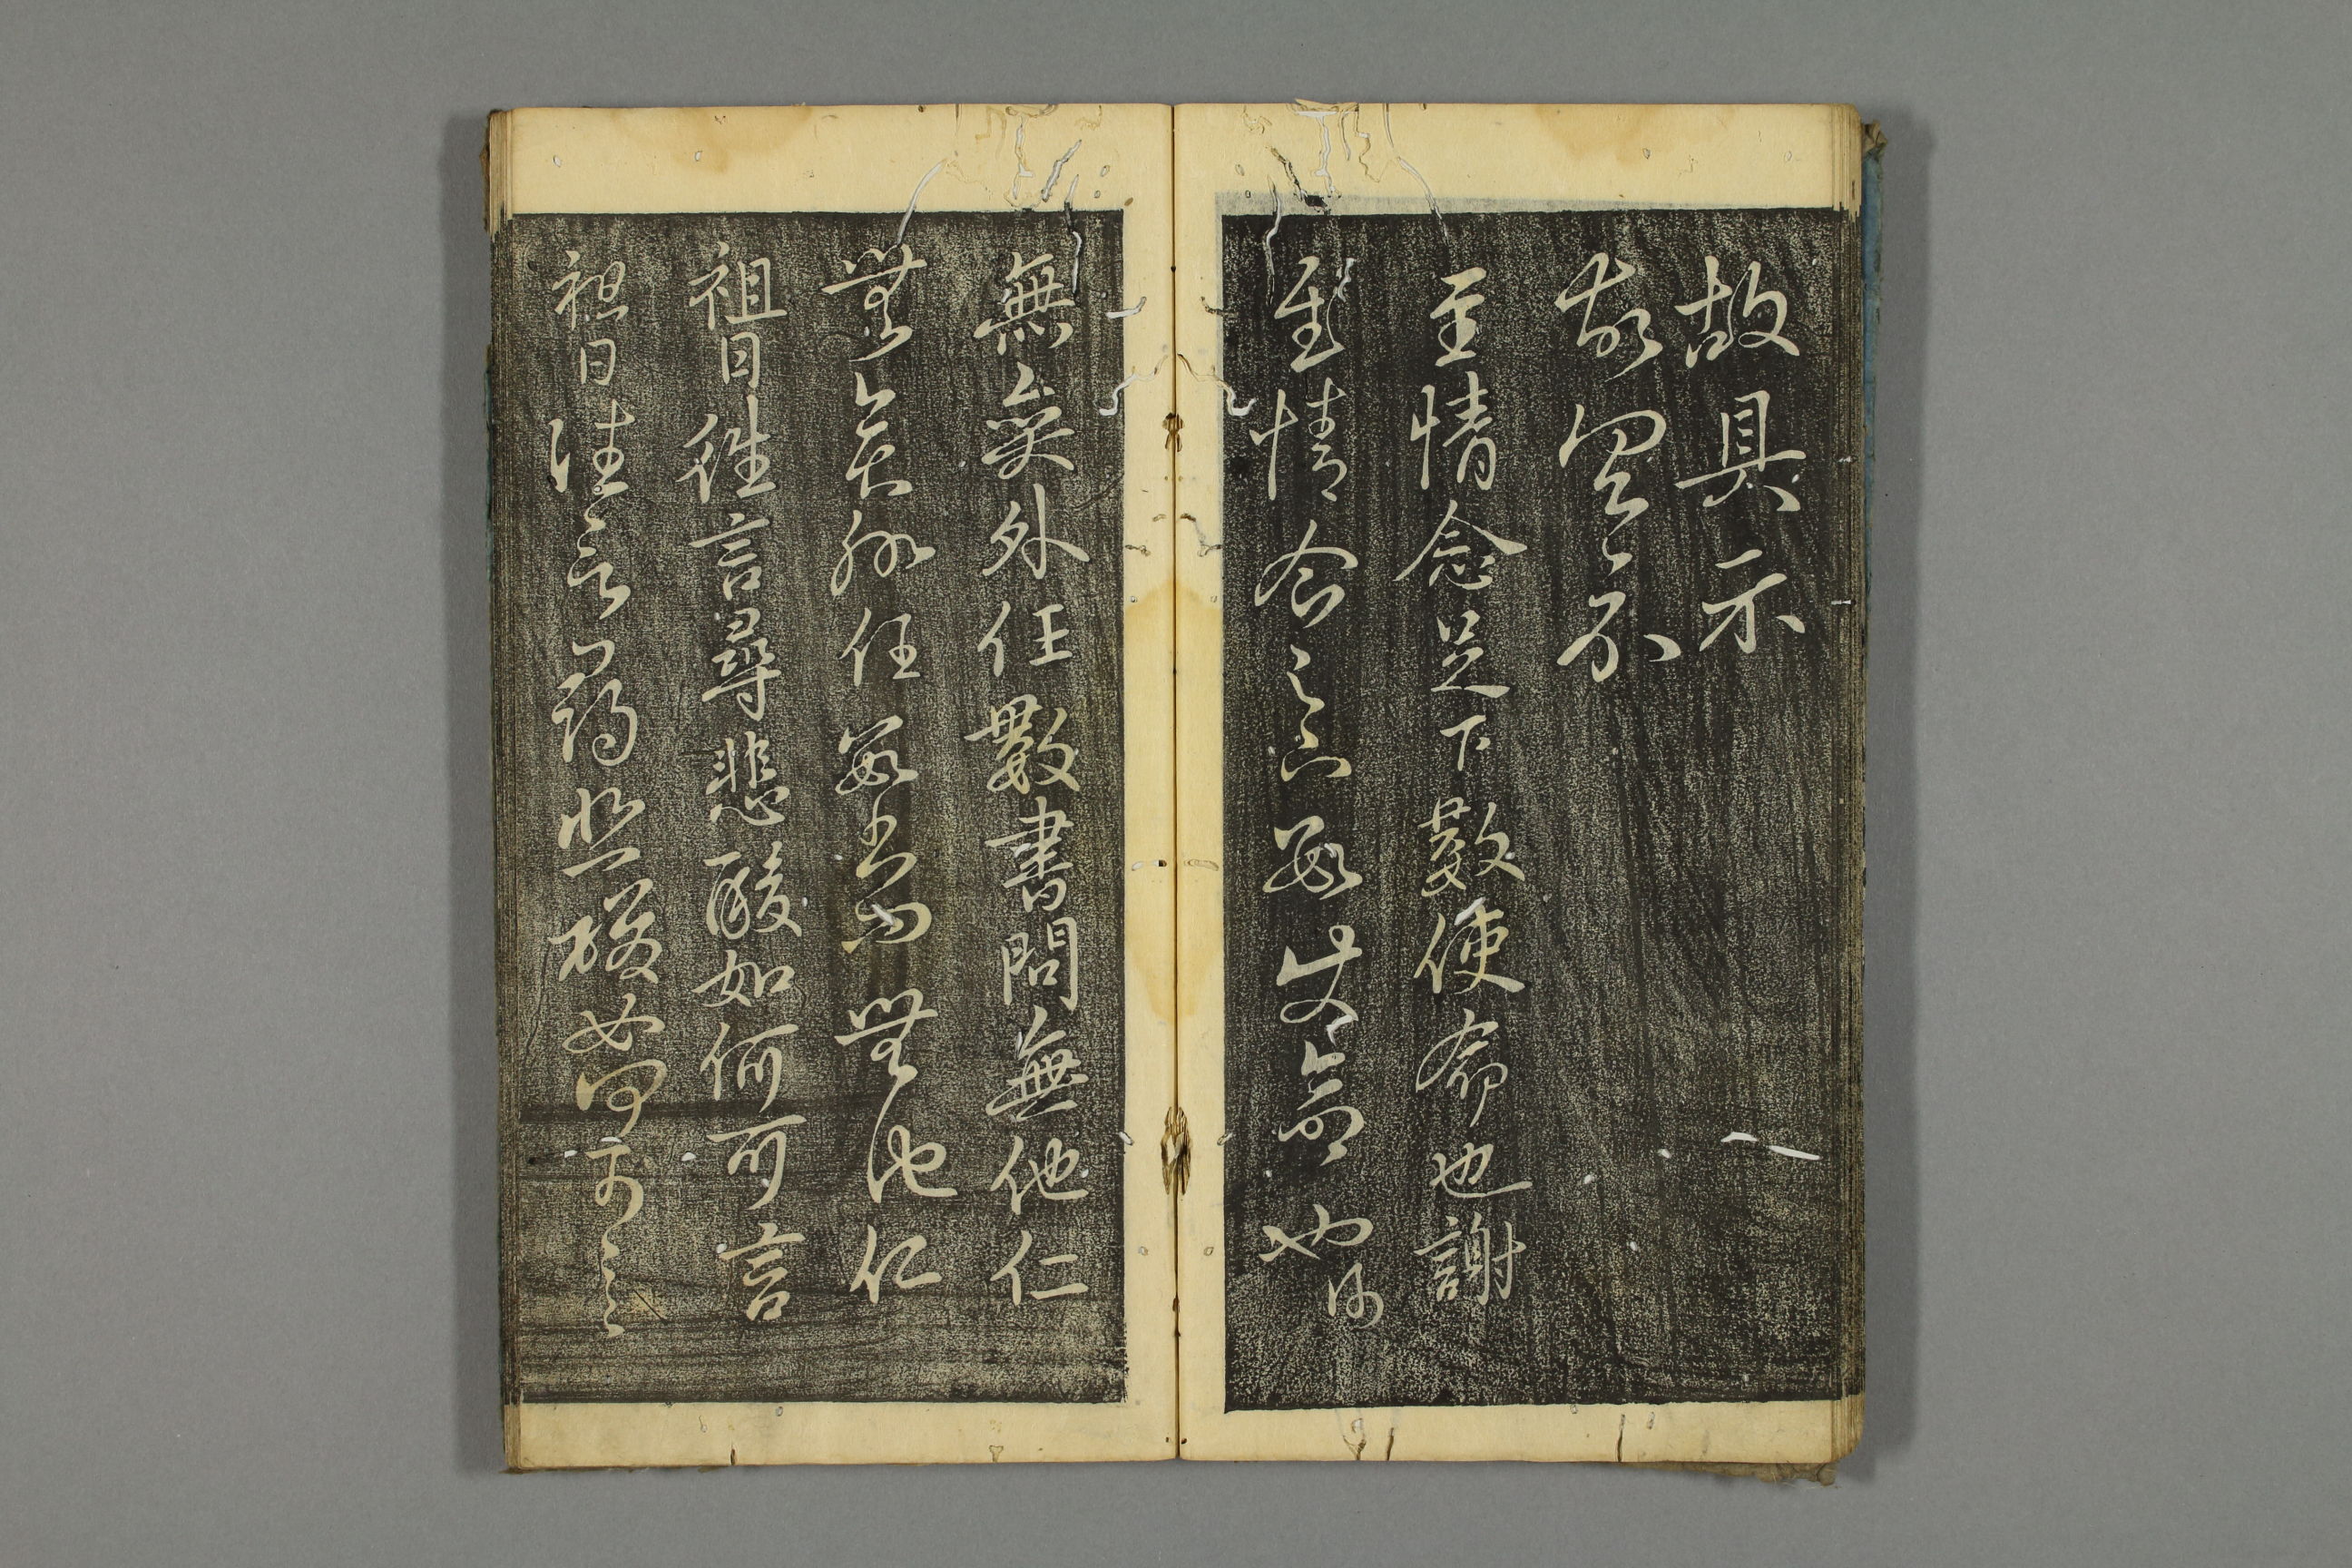 故具示
故具示
至情念足下數使命也謝
至情念足下數使命也謝
無奕外任數書問無他仁
無奕外任數書問無他仁
祖日往言尋悲酸如何可言
祖日往言尋悲酸如何可言